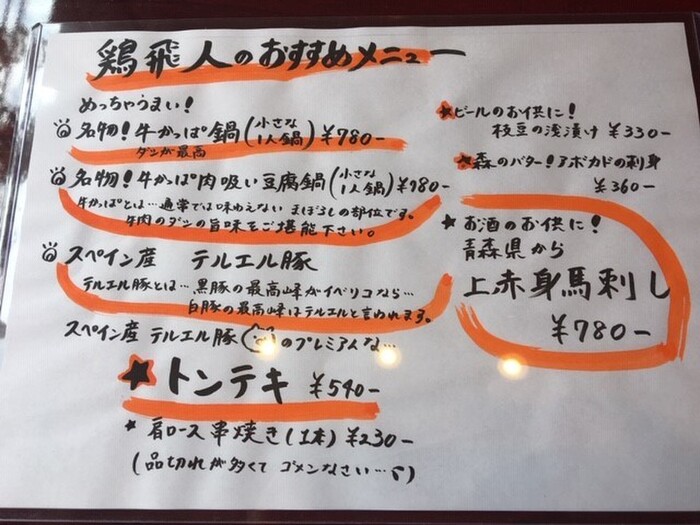 鶏飛人のおすすめメニュー
めっちゃうまい!
名物!牛かっぱ鍋(小さな1人鍋)¥780-
ダシが最高
名物!牛かっぱ肉吸い豆腐鍋(小さな1人鍋)¥980-
牛かっぱとは…通常では味わえない まぼろしの部位です。
牛肉のダシの旨味をご堪能下さい。
スペイン産 テルエル豚
テルエル豚とは…黒豚の最高峰がイベリコなら…
白豚の最高峰はテルエルと言われます。
スペイン産 テルエル豚のプレミアムな…
★トンテキ ¥540-
★肩ロース串焼き(1本)¥230-
(品切れが多くて ゴメンなさい…)
★ビールのお供に!
枝豆の浅漬け ¥330-
★森のバター!アボカドの刺身
¥360-
★お酒のお供に!
青森県から
上赤身馬刺し
¥780-